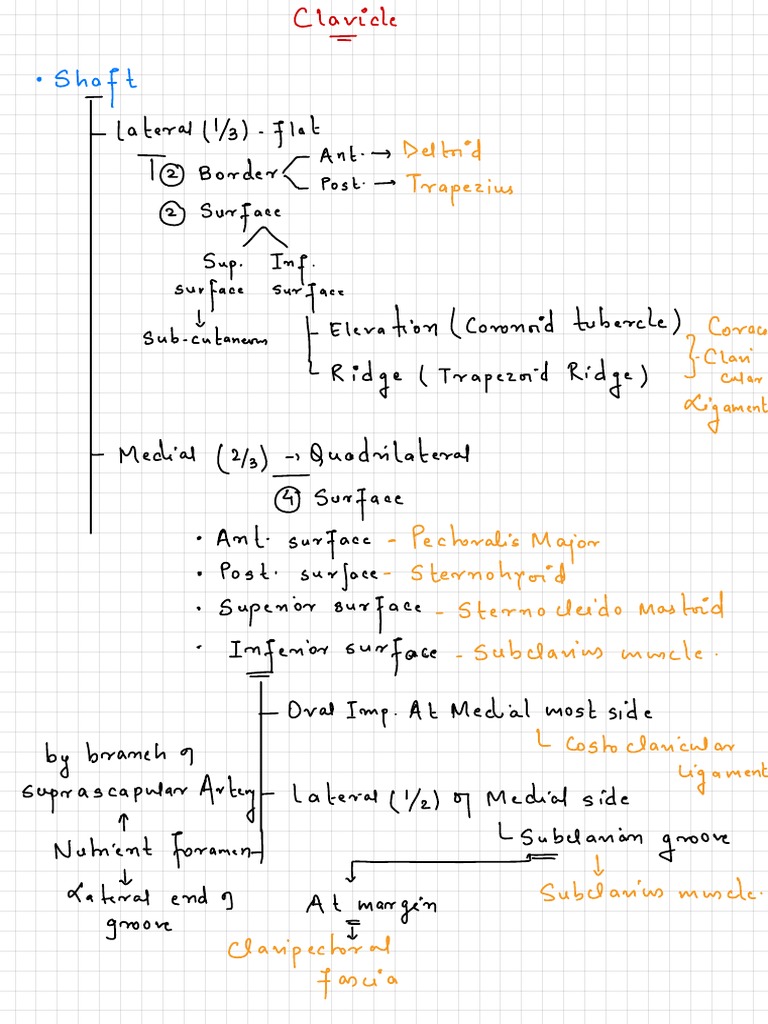 Clavicle
• Shaft
Lateral (1/3) - flat
② Border
Ant. → Deltoid
Post. → Trapezius
② Surface
Sup. surface
Inf. surface
↓
Sub-cutaneous
Elevation (Coronoid tubercle)
Ridge (Trapezoid Ridge)
Coraco
Clavi
cular
Ligament
Medial (2/3) → Quadrilateral
④ Surface
• Ant. surface - Pectoralis Major
• Post. surface - Sternohyoid
• Superior surface - Sternocleido Mastoid
• Inferior surface - Subclavius muscle.
Oval Imp. At Medial most side
Costoclavicular
Ligament
Lateral (1/2) of Medial side
Subclavian groove
↓
Subclavius muscle.
by branch of
suprascapular Artery
↑
Nutrient foramen
↓
Lateral end of
groove
At margin
↓
Clavipectoral
fascia